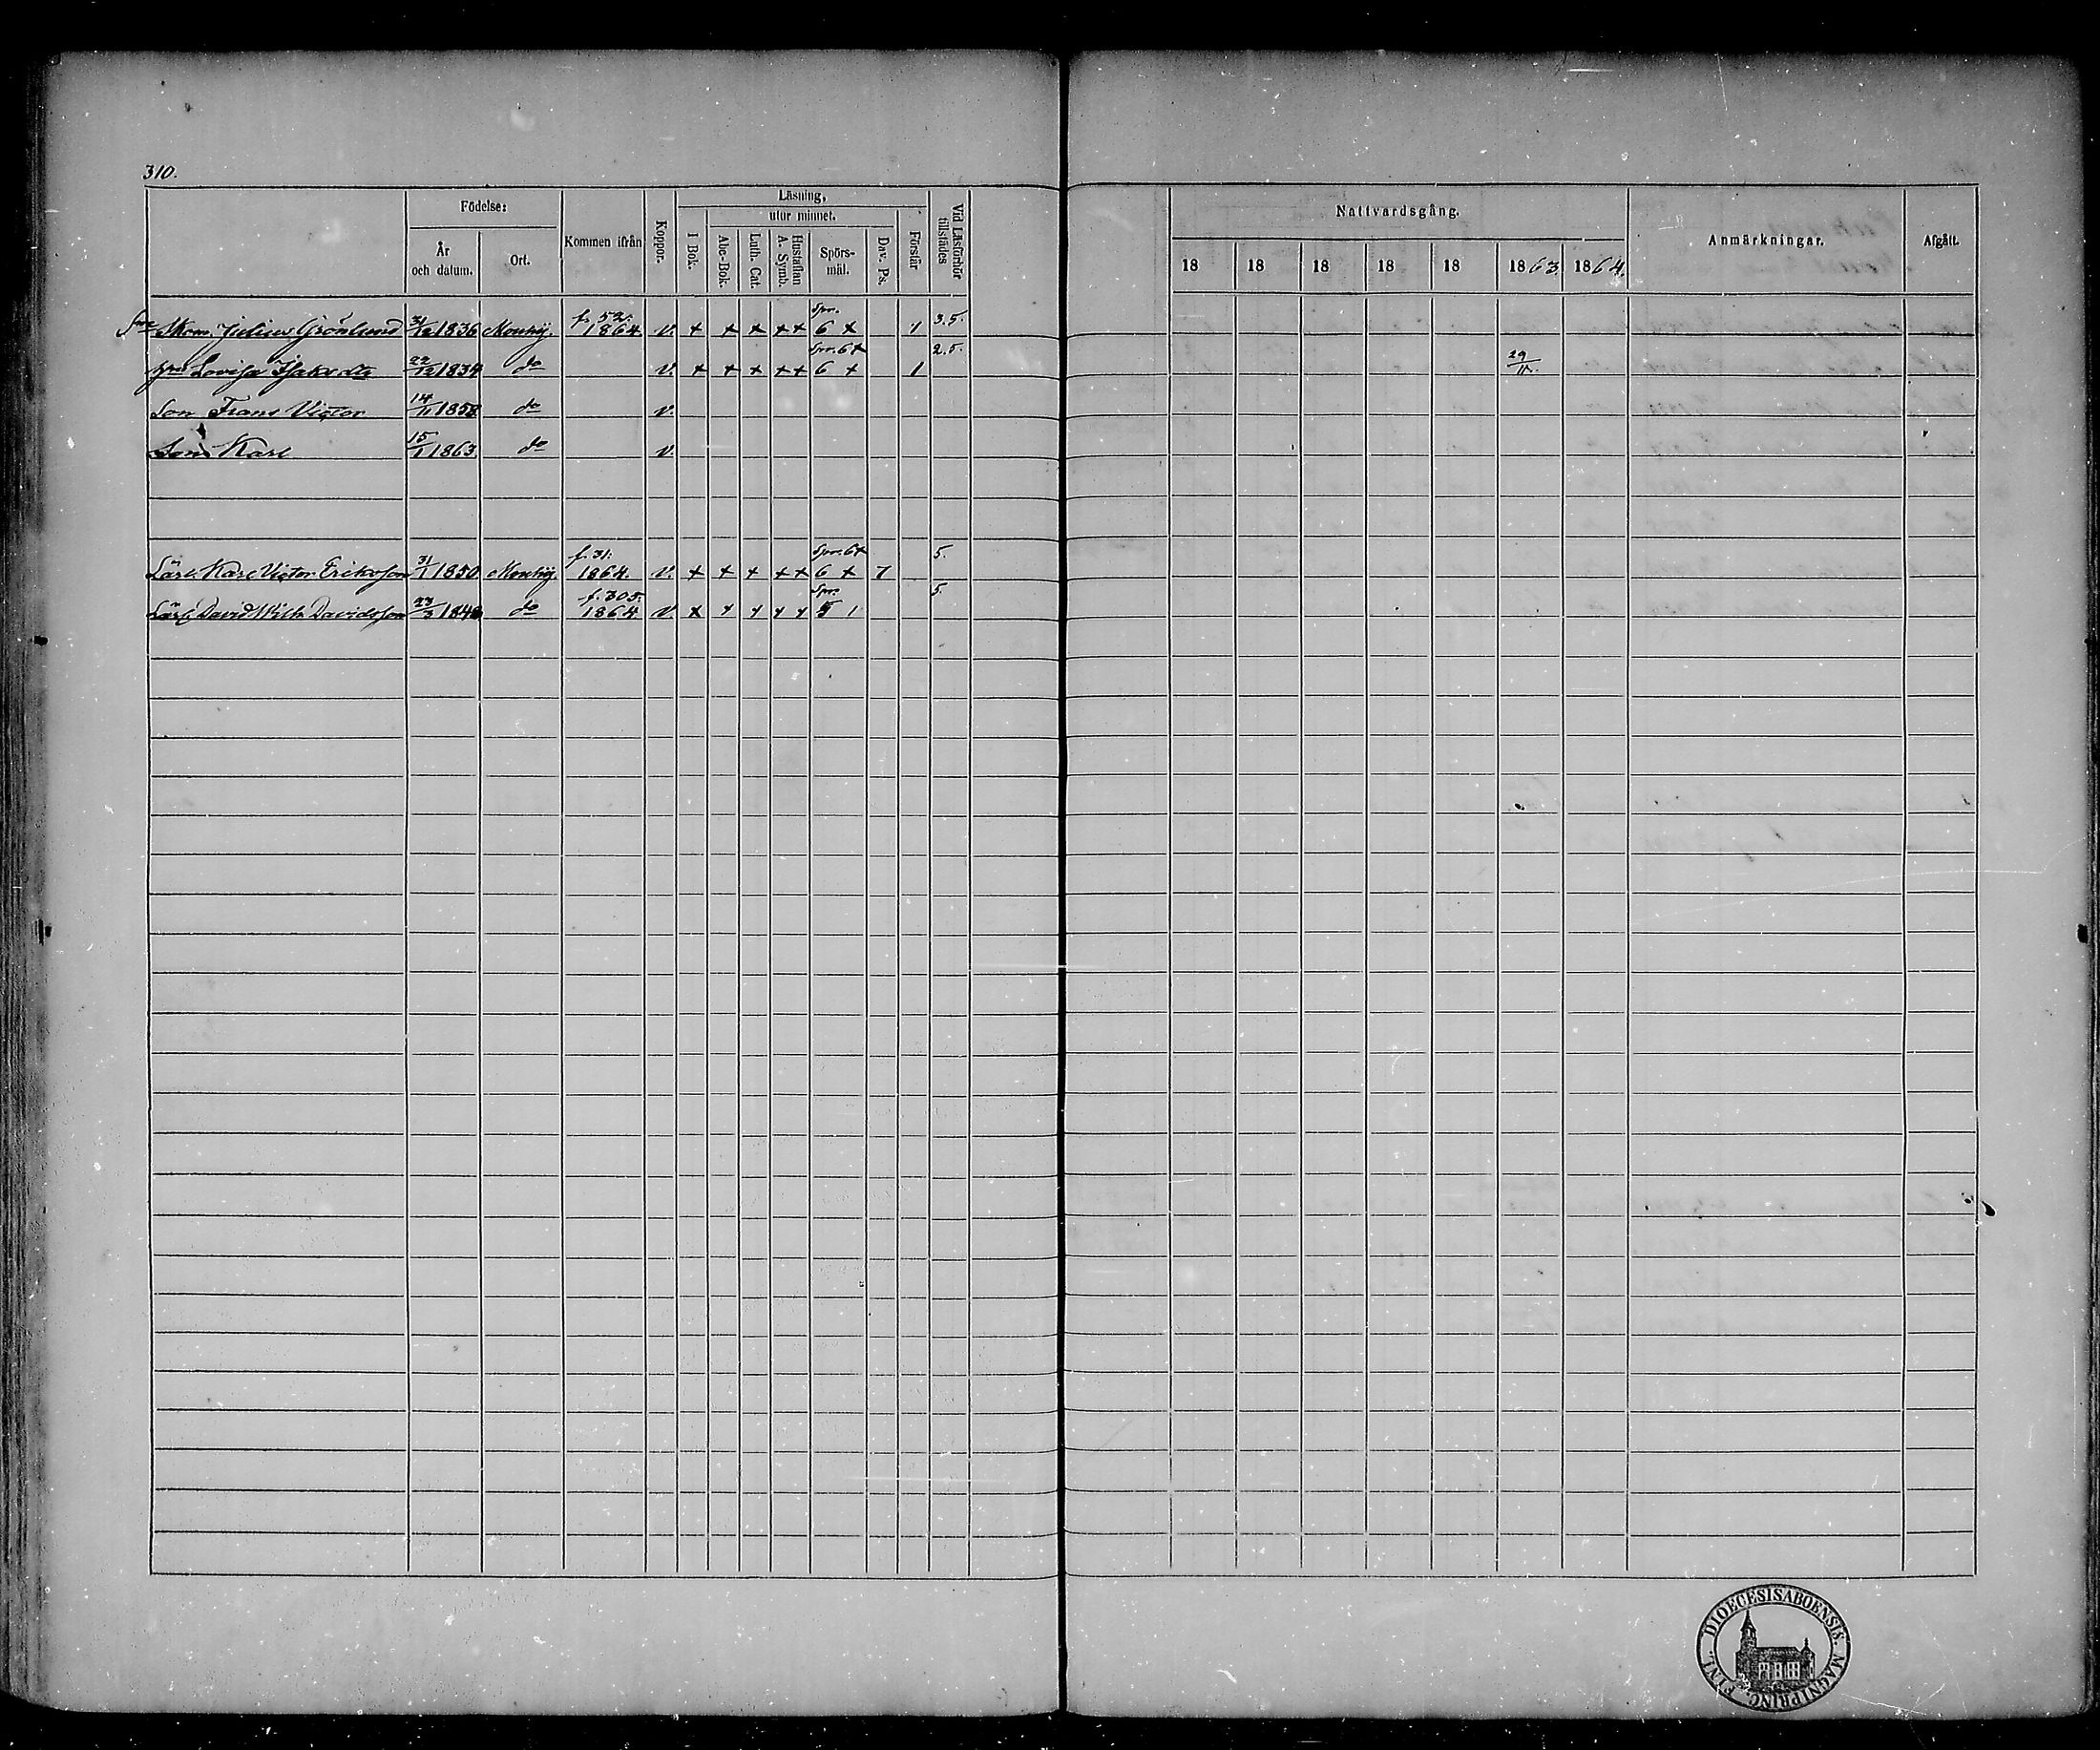 310.
Födelse:
År och datum.
Ort.
Kommen ifrån
Koppor.
Läsning,
utur minnet.
I Bok.
Abc-Bok.
Luth. Cat.
Hustaflan A. Symb.
Spörs-mål.
Dav. Ps.
Förstår
Vid Läsförhör tillstädes
Nattvardsgång.
18 18 18 18 18 1863. 1864.
Anmärkningar.
Afgått.
Skom. Julius Grönlund 31/12 1836 f. 52. 1864. v. + + + ++ Spr. 6 + 1 3.5.
Lovisa Isaksdtr 22/12 1834 do v. + + + ++ Spr. 6+ 6 + 1 2.5. 29/11.
Son Frans Victor 14/11 1858 do v.
Son Karl 15/1 1863. do v.
Lärl. Karl Victor Eriksson 31/1 1850 f. 31. 1864. v. + + + ++ Spr. 6+ 6 + 7 5.
Lärl. David Wilh. Davidsson 23/3 1848 do f. 305. 1864. v. x y y y y Spr. 5 1 5.
DIOECESIS ABOENSIS. MAGNI PRINC. FINL.